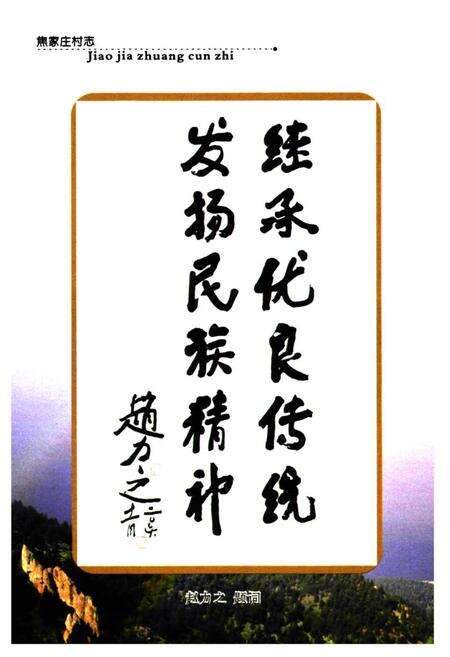 焦家庄村志
Jiao jia zhuang cun zhi
继承优良传统
发扬民族精神
趙力之
赵力之 题词